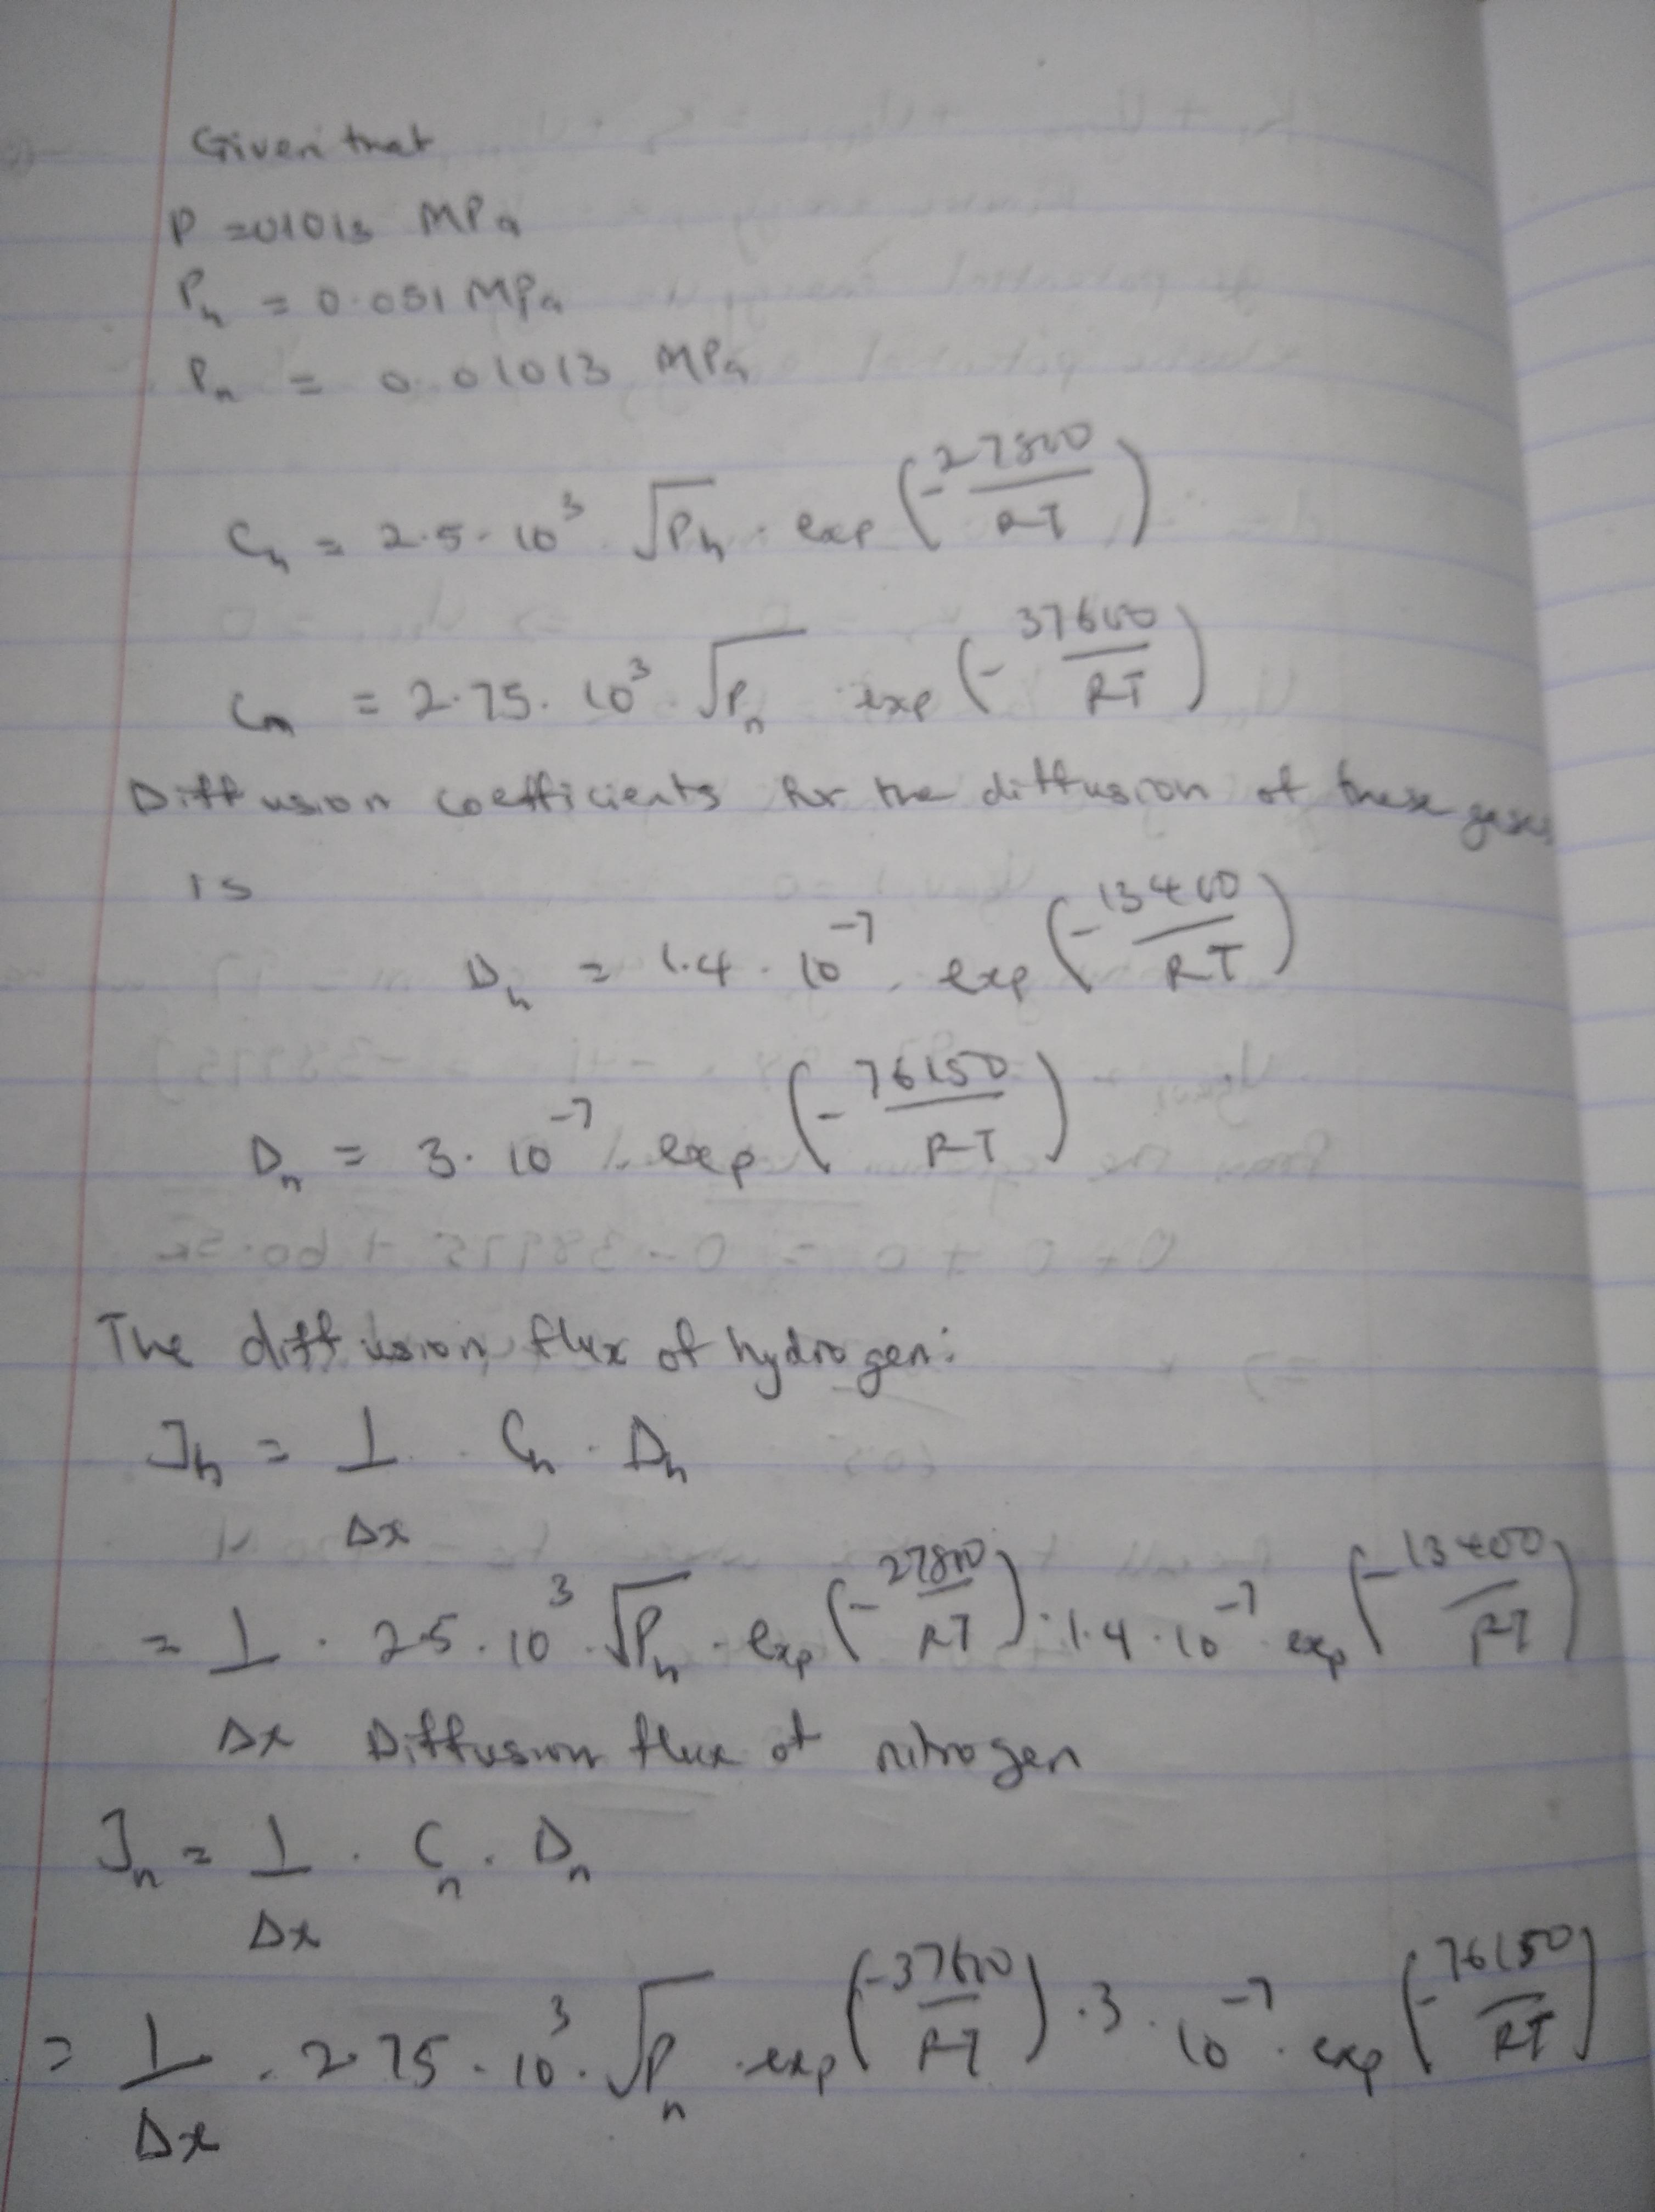 Given that
P = 01013 MPa
P_h = 0.051 MPa
P_n = 0.01013 MPa
C_h = 2.5 · 10^3 √P_h · exp (-27800/RT)
C_n = 2.75 · 10^3 √P_n exp (-37600/RT)
Diffusion coefficients for the diffusion of these gases
is
D_h = 1.4 · 10^-7 · exp (-13400/RT)
D_n = 3 · 10^-7 · exp (-76150/RT)
The diffusion flux of hydrogen:
J_h = 1/Δx · C_h · D_h
= 1/Δx · 2.5 · 10^3 · √P_h · exp (-27800/RT) · 1.4 · 10^-7 · exp (-13400/RT)
Diffusion flux of nitrogen
J_n = 1/Δx · C_n · D_n
= 1/Δx · 2.75 · 10^3 · √P_n · exp (-37600/RT) · 3 · 10^-7 · exp (-76150/RT)